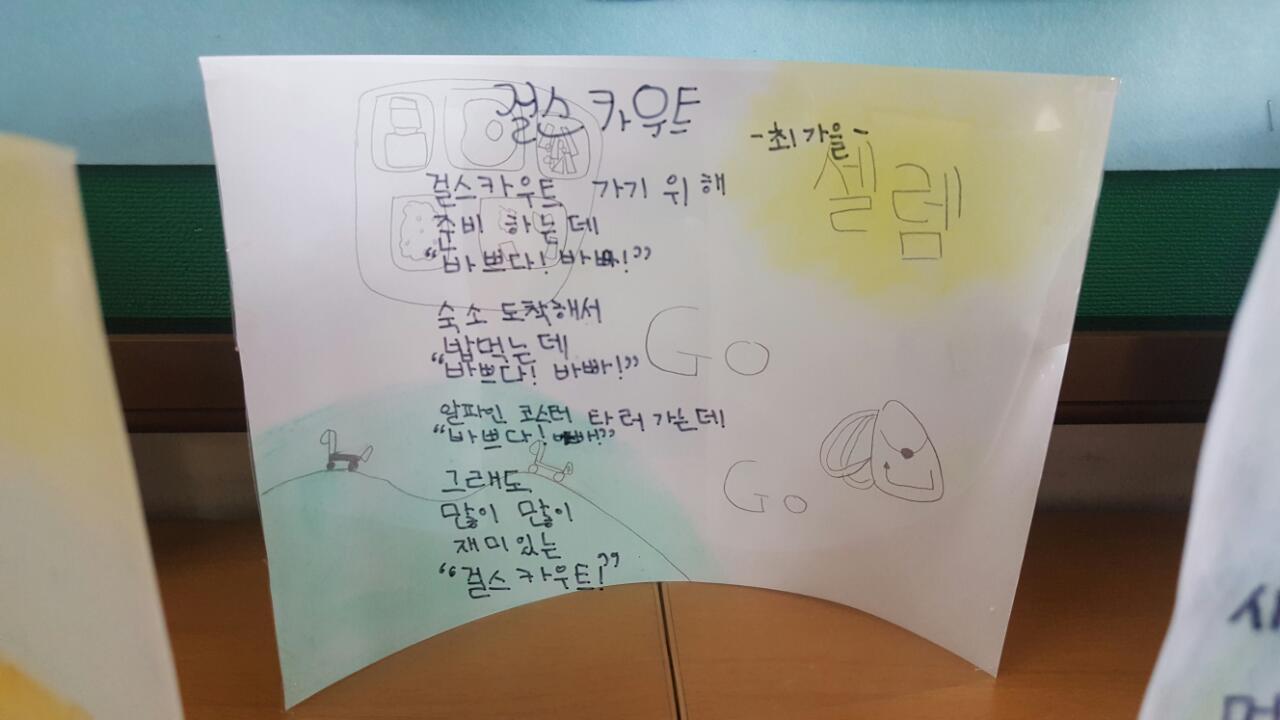 걸스카우트
-최가을-
셀렘
걸스카우트 가기 위해
준비 하는데
“바쁘다! 바빠!”
숙소 도착해서
밥먹는데
“바쁘다! 바빠!”
알파인 코스터 타러 가는데
“바쁘다! 바빠!”
그래도
많이 많이
재미있는
“걸스카우트!”
Go
Go